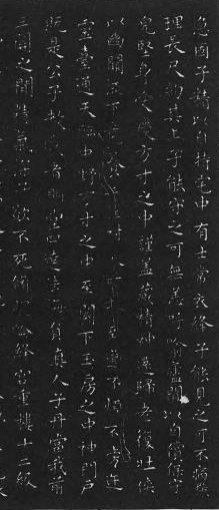 急固子精以自持宅中有士常衣絳子能見之可不病橫
理長尺約其上子能守之可無恙呼噏廬間以自償保守
完堅身受慶方寸之中謹蓋藏精神還歸老復壯俠
以幽闕流下竟養子玉樹令可杖至道不煩不旁迕
靈臺通天臨中野方寸之中至關下玉房之中神門戶
既是公子教我者明堂四達法海員真人子丹當我前
三關之間精氣深子欲不死脩崑崙絳宮重樓十二級